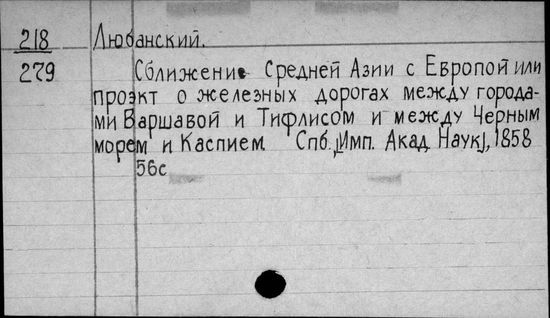 218 Любанский.
279 Сближение Средней Азии с Европой или
проэкт о железных дорогах между города-
ми Варшавой и Тифлисом и между Черным
морем и Каспием Спб., [Имп. Акад. Наук], 1858
56с